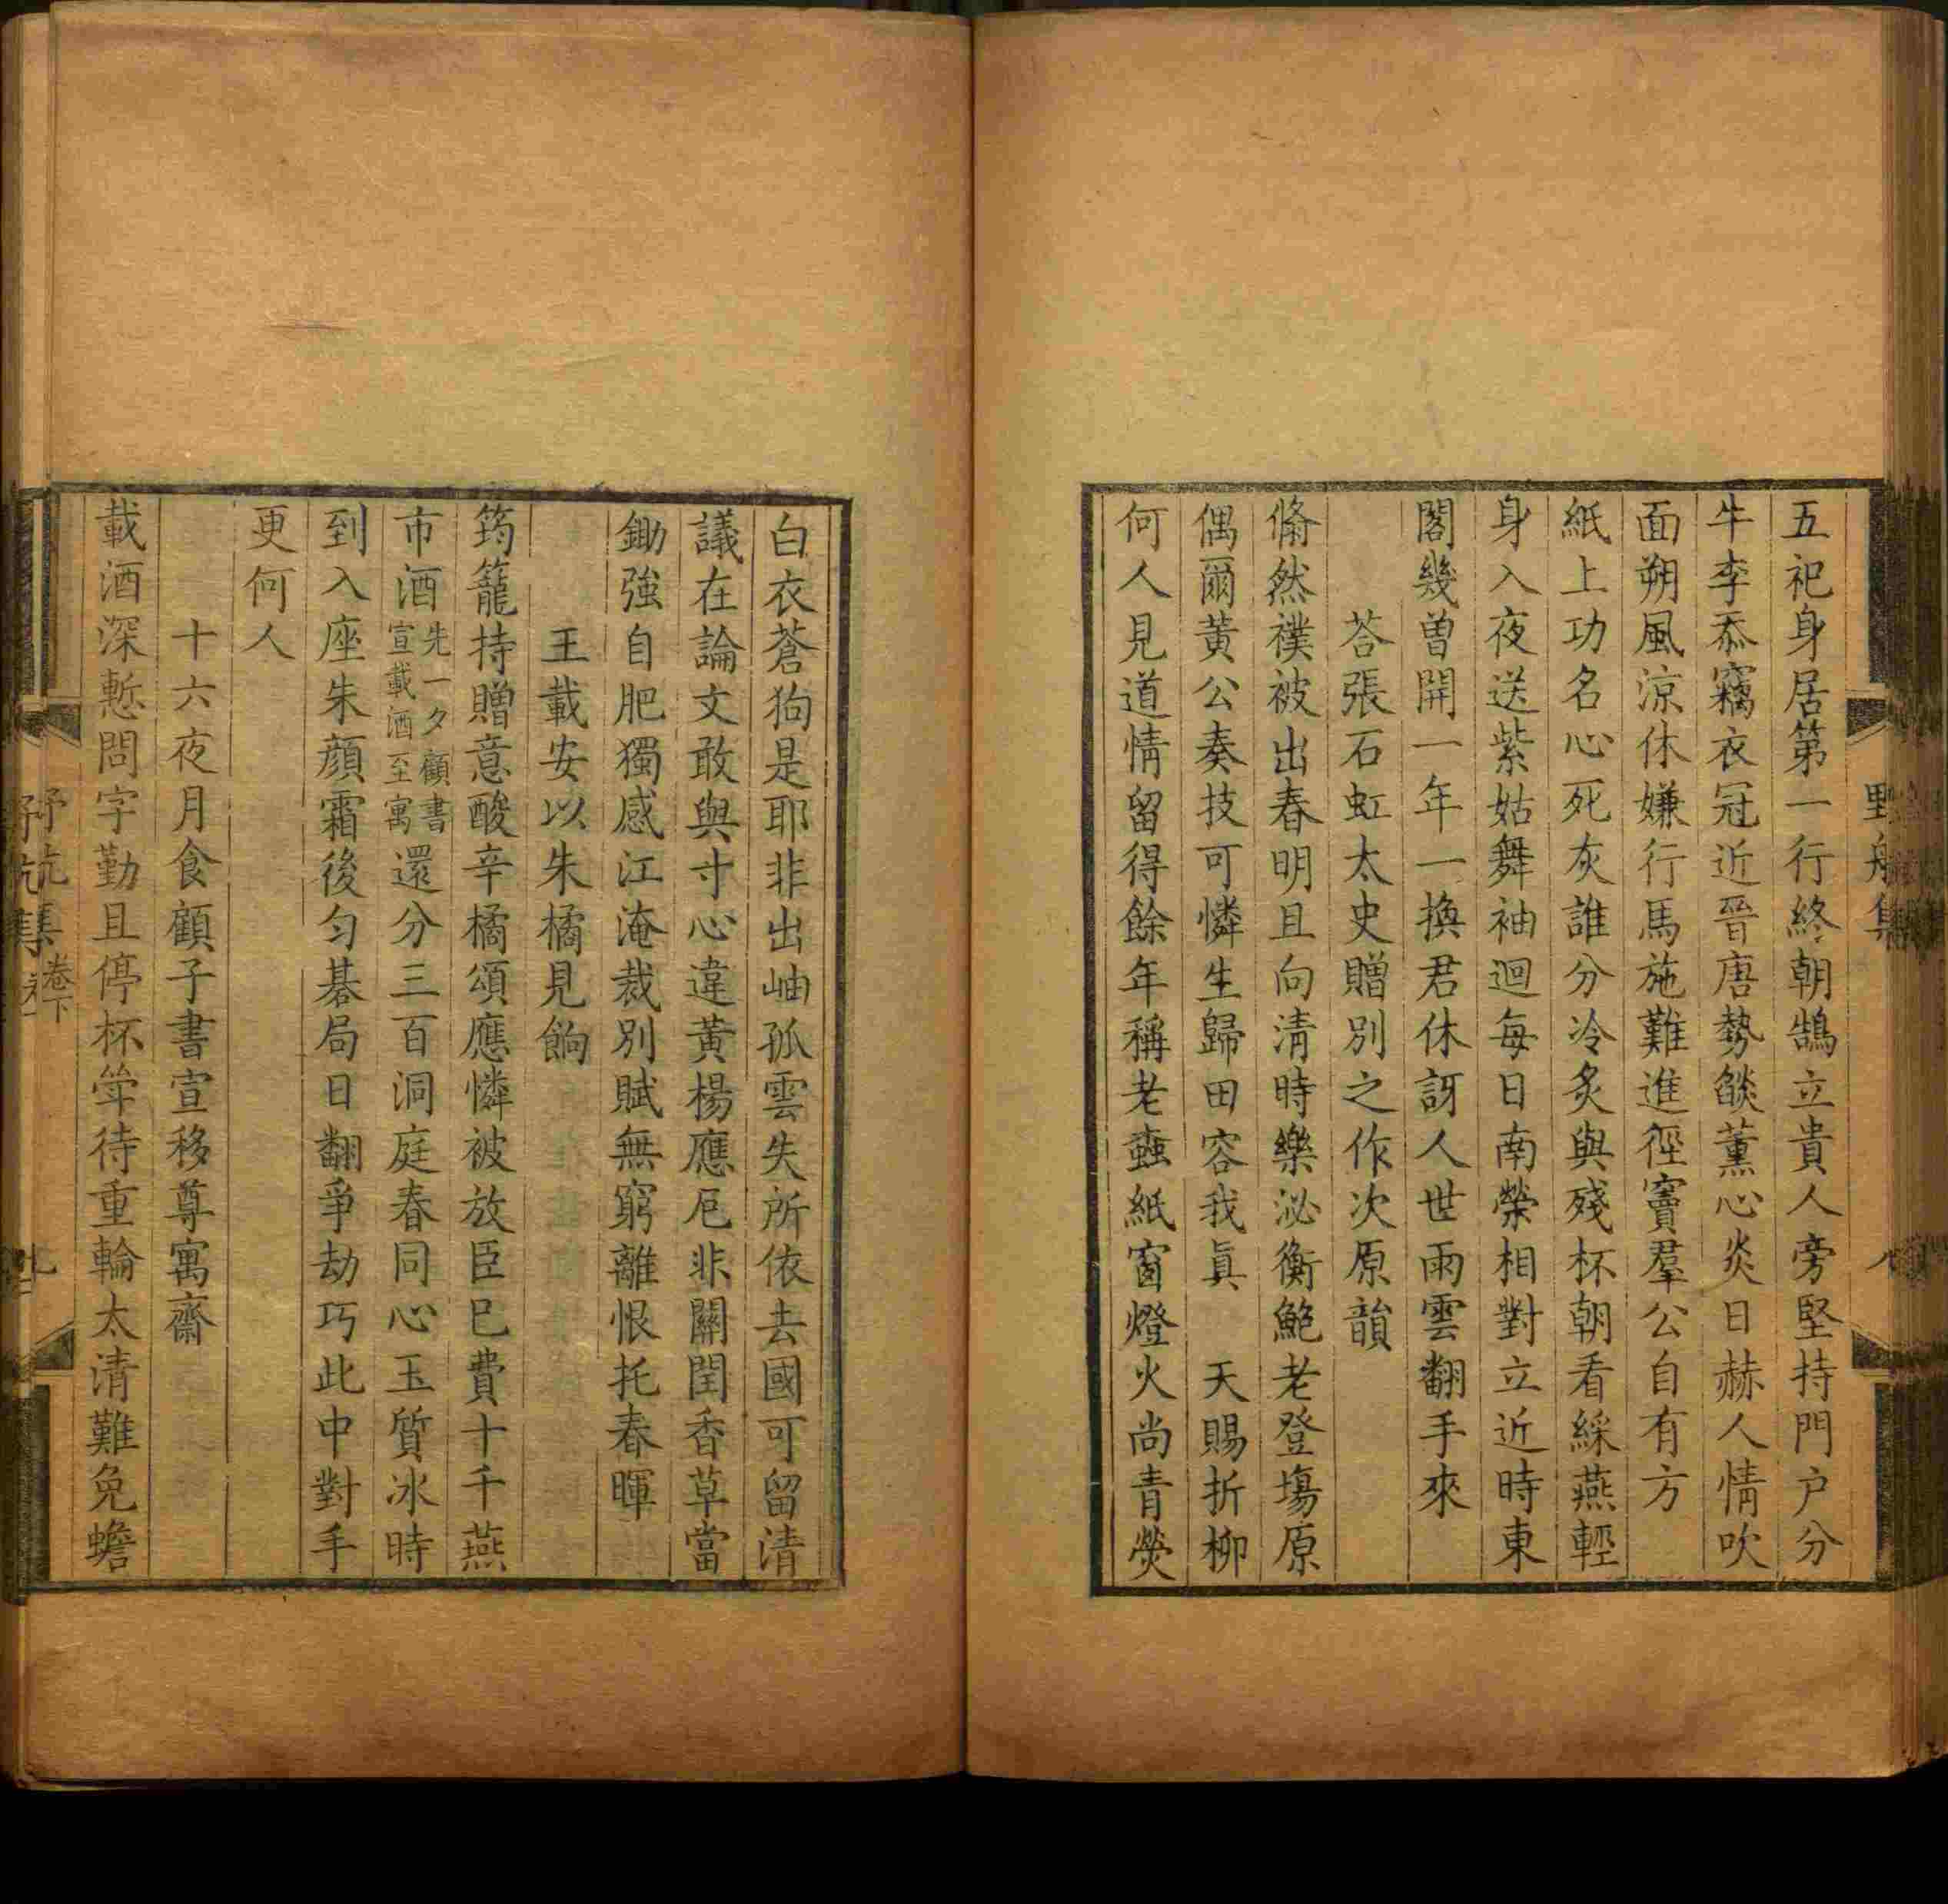 五祀身居第一行終朝鵠立貴人旁堅持門户分
牛李忝竊衣冠近晉唐勢燄薰心炎日赫人情吹
面朔風涼休嫌行馬施難進徑竇羣公自有方
紙上功名心死灰誰分冷炙與殘杯朝看綵燕輕
身入夜送紫姑舞袖迴每日南榮相對立近時東
閣幾曾開一年一換君休訝人世雨雲翻手來
荅張石虹太史贈別之作次原韻
翛然襆被出春明且向清時樂泌衡鮑老登塲原
偶爾黃公奏技可憐生歸田容我眞 天賜折柳
何人見道情留得餘年稱老蠧紙窗燈火尚青熒
白衣蒼狗是耶非出岫孤雲失所依去國可留清
議在論文敢與寸心違黃楊應厄非關閏香草當
鋤強自肥獨感江淹裁別賦無窮離恨托春暉
王載安以朱橘見餉
筠籠持贈意酸辛橘頌應憐被放臣巳費十千燕
市酒先一夕顧書宣載酒至寓還分三百洞庭春同心玉質冰時
到入座朱顔霜後匀棊局日翻爭劫巧此中對手
更何人
十六夜月食顧子書宣移尊寓齋
載酒深慙問字勤且停杯斚待重輪太清難免蟾
野航集
卷下